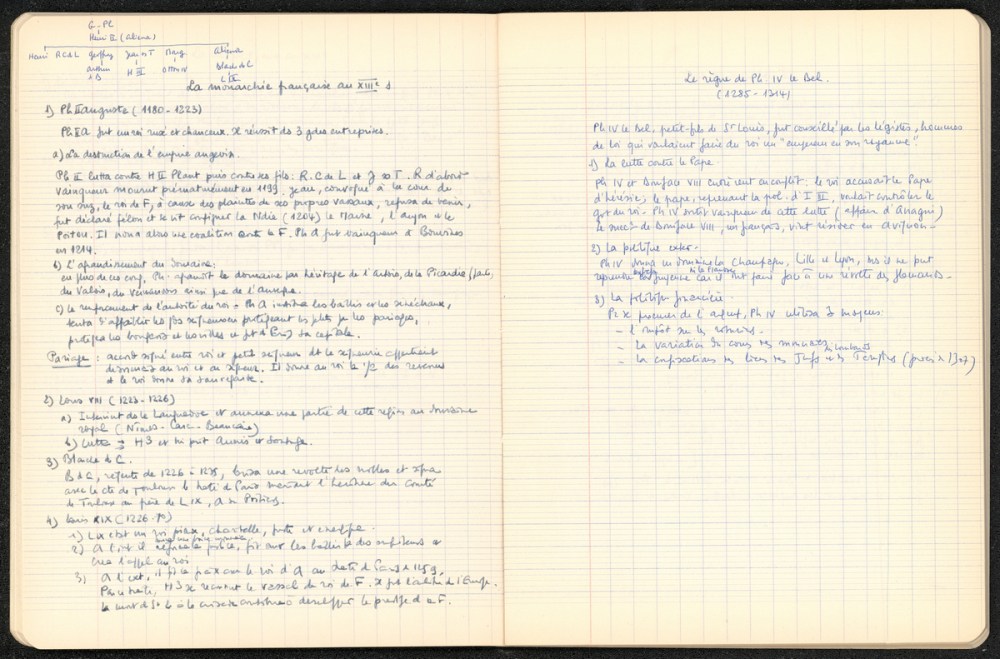 G. Pl.
Henri II (Aliénor)
Henri R C de L Geoffroy Jean s T Marg Aliénor
H III Otton IV Blanche de C
L IX
La monarchie française au XIIIe s
1) Ph II Auguste (1180 - 1223)
Ph II A fut un roi rusé et chanceux. Il réussit ds 3 gdes entreprises.
a) La destruction de l'empire angevin.
Ph II lutta contre H II Plant puis contre ses fils : R. C de L et J s T. R d'abord
vainqueur mourut prématurément en 1199. Jean, convoqué à la cour de
son suz, le roi de F, à cause des plaintes de ses propres vassaux, refusa de venir,
fut déclaré félon et se vit confisquer la Ndie (1204) le Maine, l'Anjou et le
Poitou. Il noua alors une coalition contre le F. Ph A fut vainqueur à Bouvines
en 1214.
b) L'agrandissement du domaine :
en plus de ces conq, Ph. agrandit le domaine par héritage de l'Artois, de la Picardie
du Valois, du Vermandois ainsi que de l'Auvergne.
c) Le renforcement de l'autorité du roi - Ph A institua les baillis et les sénéchaux,
tenta d'affaiblir les gds seigneurs en protégeant les petits par les pariages,
protégea les bourgeois et les villes et fit de Paris sa capitale.
Pariage : accord signé entre roi et petit seigneur dt la seigneurie appartient
désormais au roi et au seigneur. Il donne au roi le 1/2 des revenus
et le roi donne sa sauvegarde.
2) Louis VIII (1223 - 1226)
a) Intervint ds le Languedoc et annexa une partie de cette région au domaine
royal (Nîmes - Carc - Beaucaire)
b) Lutta H3 et lui prit Aunis et Saintonge.
3) Blanche de C.
B d C, régente de 1226 à 1235, brisa une révolte des nobles et signa
avec le cte de Toulouse le traité de Paris mariant l'héritière du comté
de Toulouse au frère de L IX, A de Poitiers.
4) Louis IX (1226 - 70)
1) L IX était un roi pieux, charitable, juste et énergique.
2) A l'int il
créa l'appel au roi
3) A l'ext, il fit la paix avec le roi d'A au traité de Paris de 1259.
Par ce traité, H3 se reconnut le vassal du roi de F. Il fut l'arbitre de l'Europe.
La mort de St L à la croisade contribua à développer le prestige de la F.
Le règne de Ph. IV le Bel.
(1285 - 1314)
Ph IV le Bel, petit-fils de St Louis, fut conseillé par les légistes, hommes
de loi qui voulaient faire du roi un "empereur en son royaume".
1) La lutte contre le Pape
Ph IV et Boniface VIII entrèrent en conflit : le roi accusait le Pape
d'hérésie ; le pape, reprenant la pol. d'I III, voulait contrôler le
gvt du roi - Ph IV sortit vainqueur de cette lutte (affaire d'Anagni)
le succr de Boniface VIII, un français, vint résider en Avignon -
2) La politique exter -
Ph IV annexa au domaine la Champagne, Lille et Lyon, mais il ne put
reprendre la Guyenne ni la Flandre car il dut faire face à une révolte des Flamands -
3) La politique financière -
Pr se procurer de l'argent, Ph IV utilisa 3 moyens :
- l'impôt sur les roturiers -
- la variation du cours des monnaies
- la confiscation des biens des Juifs des Lombards et des Templiers (procès de 1307)